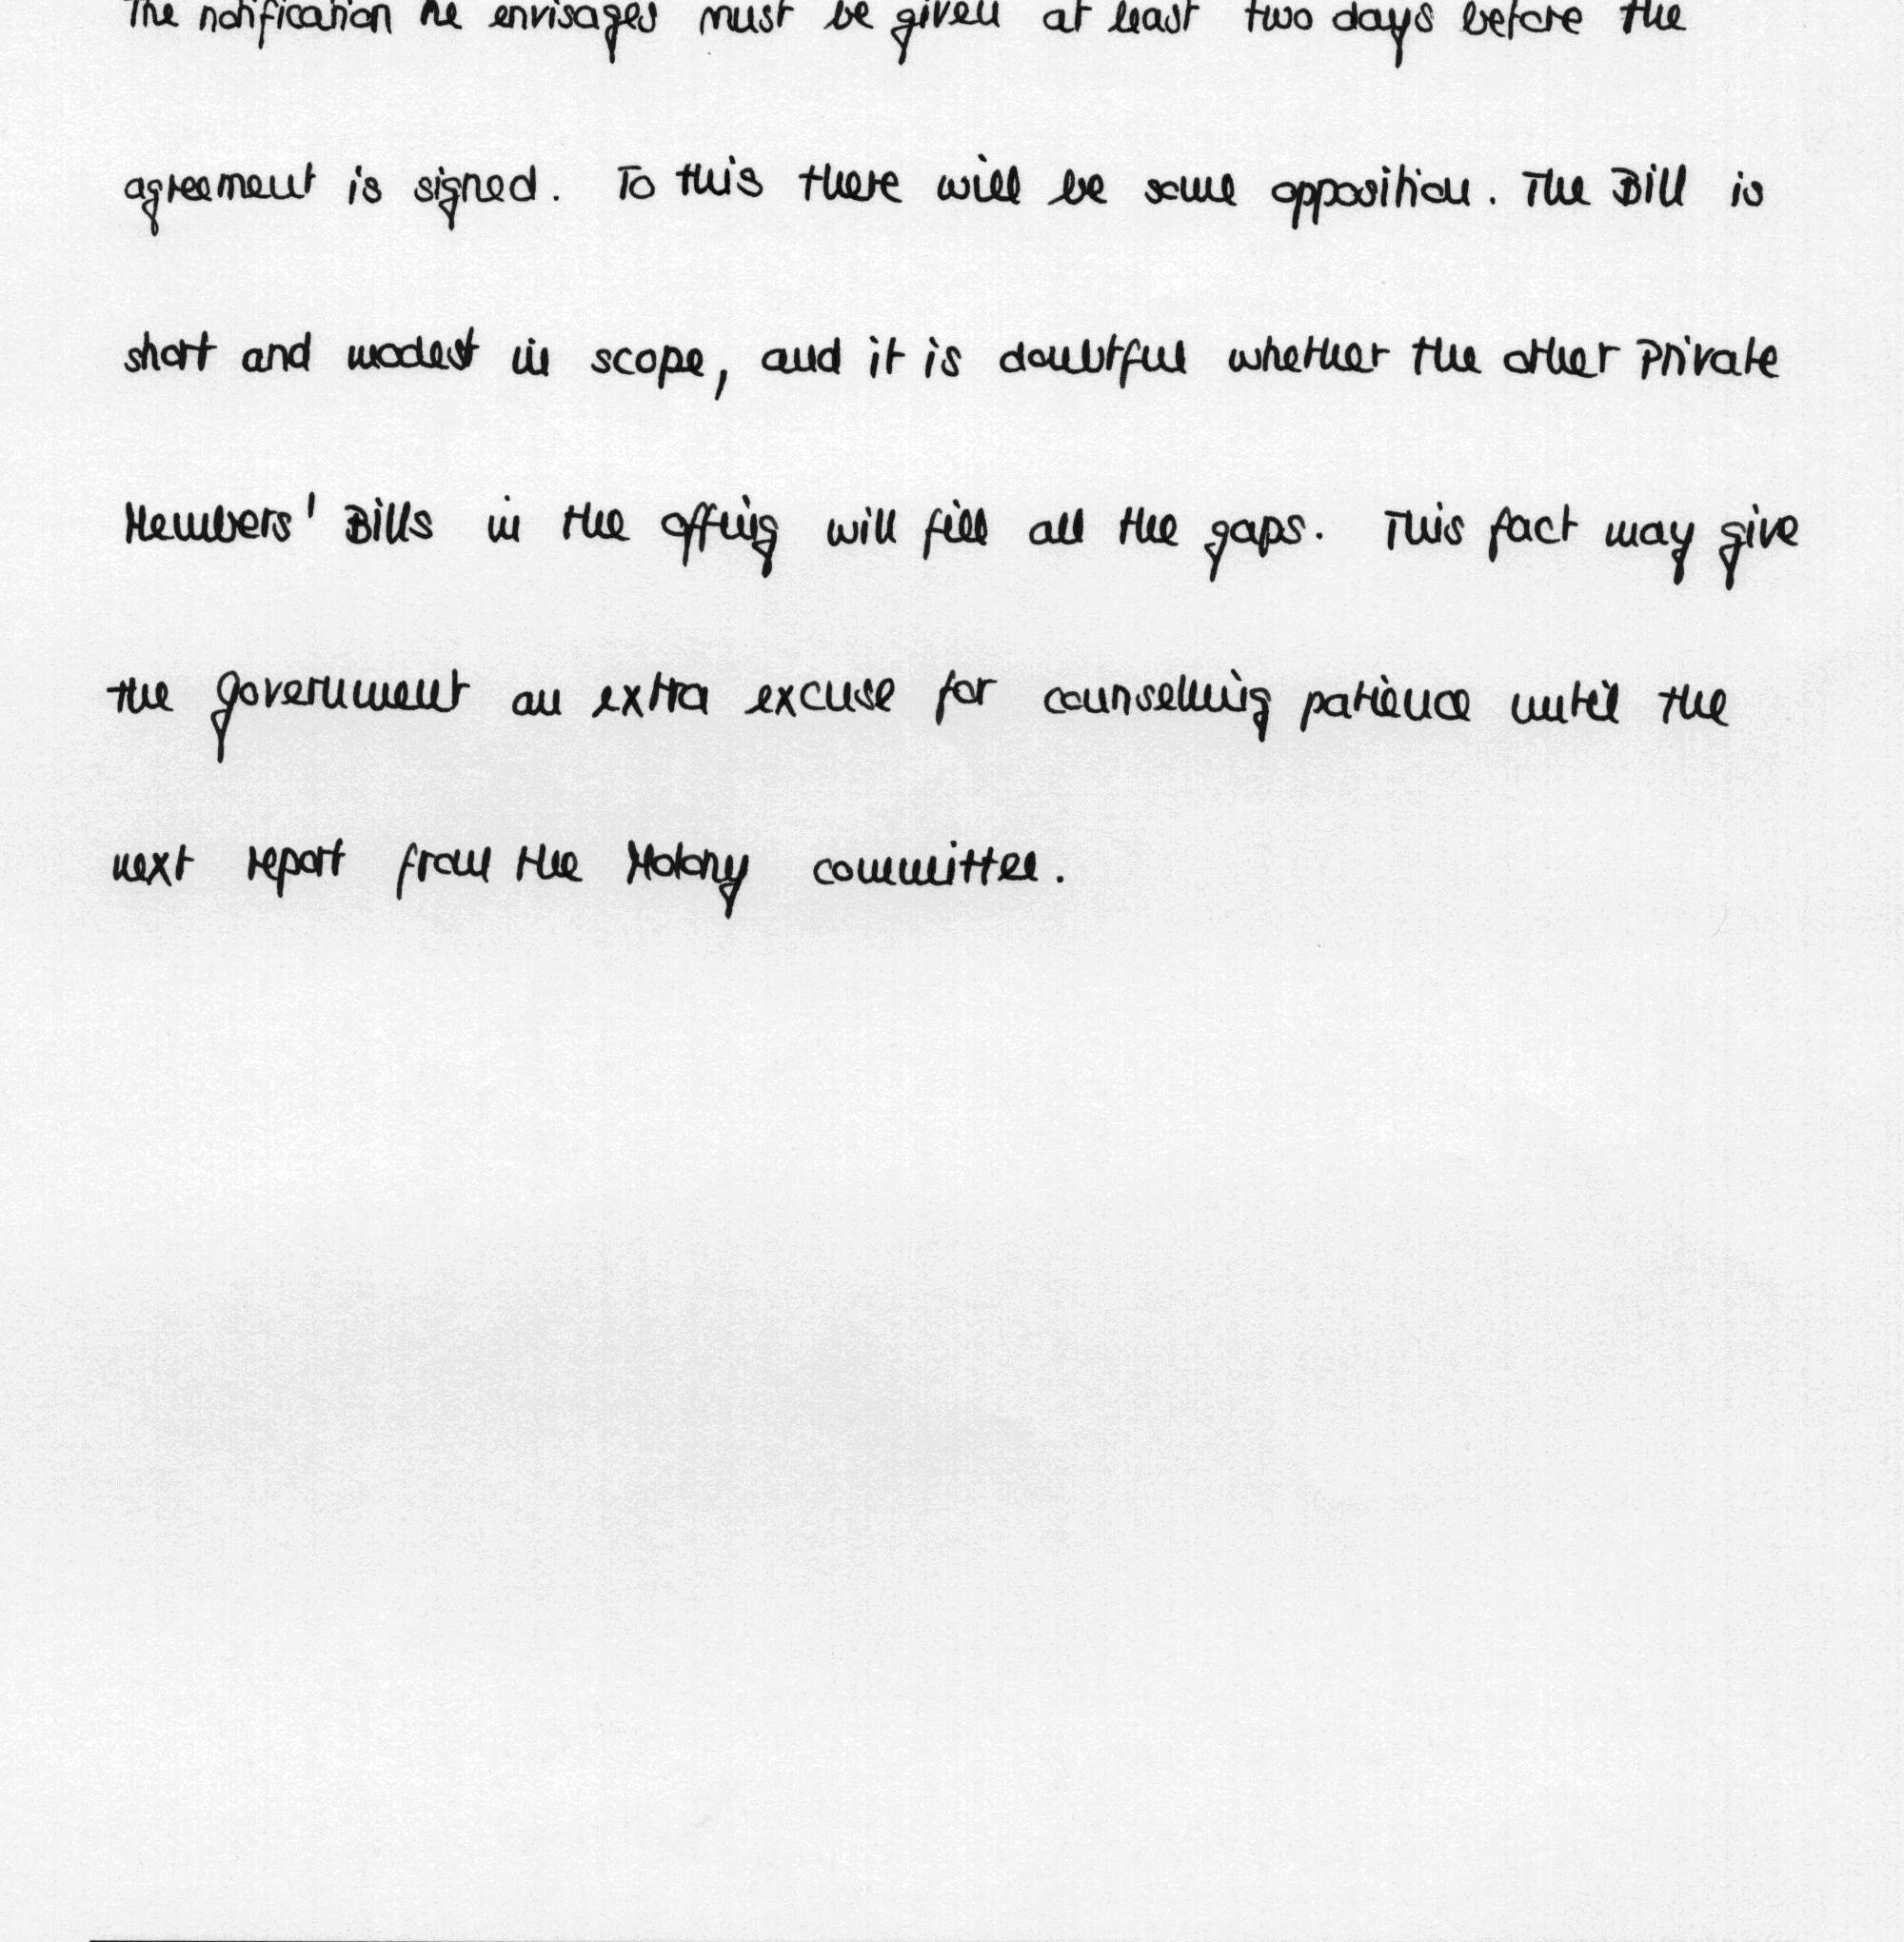 The notification he envisages must be given at least two days before the
agreement is signed. To this there will be some opposition. The Bill is
short and modest in scope, and it is doubtful whether the other Private
Members' Bills in the offing will fill all the gaps. This fact may give
the government an extra excuse for counselling patience until the
next report from the Molony committee.